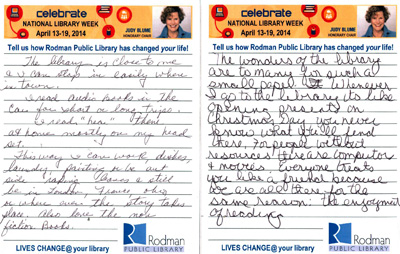 celebrate
NATIONAL LIBRARY WEEK
April 13-19, 2014
JUDY BLUME
HONORARY CHAIR
Tell us how Rodman Public Library has changed your life!
The library is close to me
I can stop in easily when
in town.
I read audio Books in the
Car for short or long trips.
I read "hear" them
at home mostly on my head
set.
This way I can work, dishes,
laundry, painting ect. or out
side raking leaves & still
be in London, France, ohio,
or where ever the story takes
place. Also love the non
fiction Books.
Rodman
PUBLIC LIBRARY
LIVES CHANGE@your library
celebrate
NATIONAL LIBRARY WEEK
April 13-19, 2014
JUDY BLUME
HONORARY CHAIR
Tell us how Rodman Public Library has changed your life!
The wonders of the library
are to many for such a
small papel. Whenever
I go to the library its like
opening presents on
Christmas Day you never
know what you'll find
there. For people without
resources there are computers
& movies. Everyone treats
you like a friend because
we are all there for the
same reason: the enjoyment
of reading.
Rodman
PUBLIC LIBRARY
LIVES CHANGE@your library